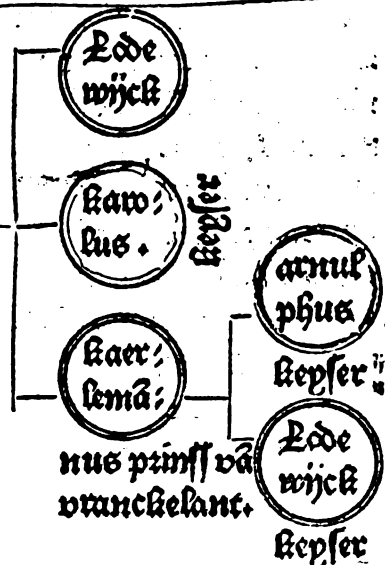 Lode
wijck
karo⸗
lus.
keyser
kaer⸗
lemā⸗
nus prinss vā
vranckelant.
arnul
phus
keyser
Lode
wijck
keyser